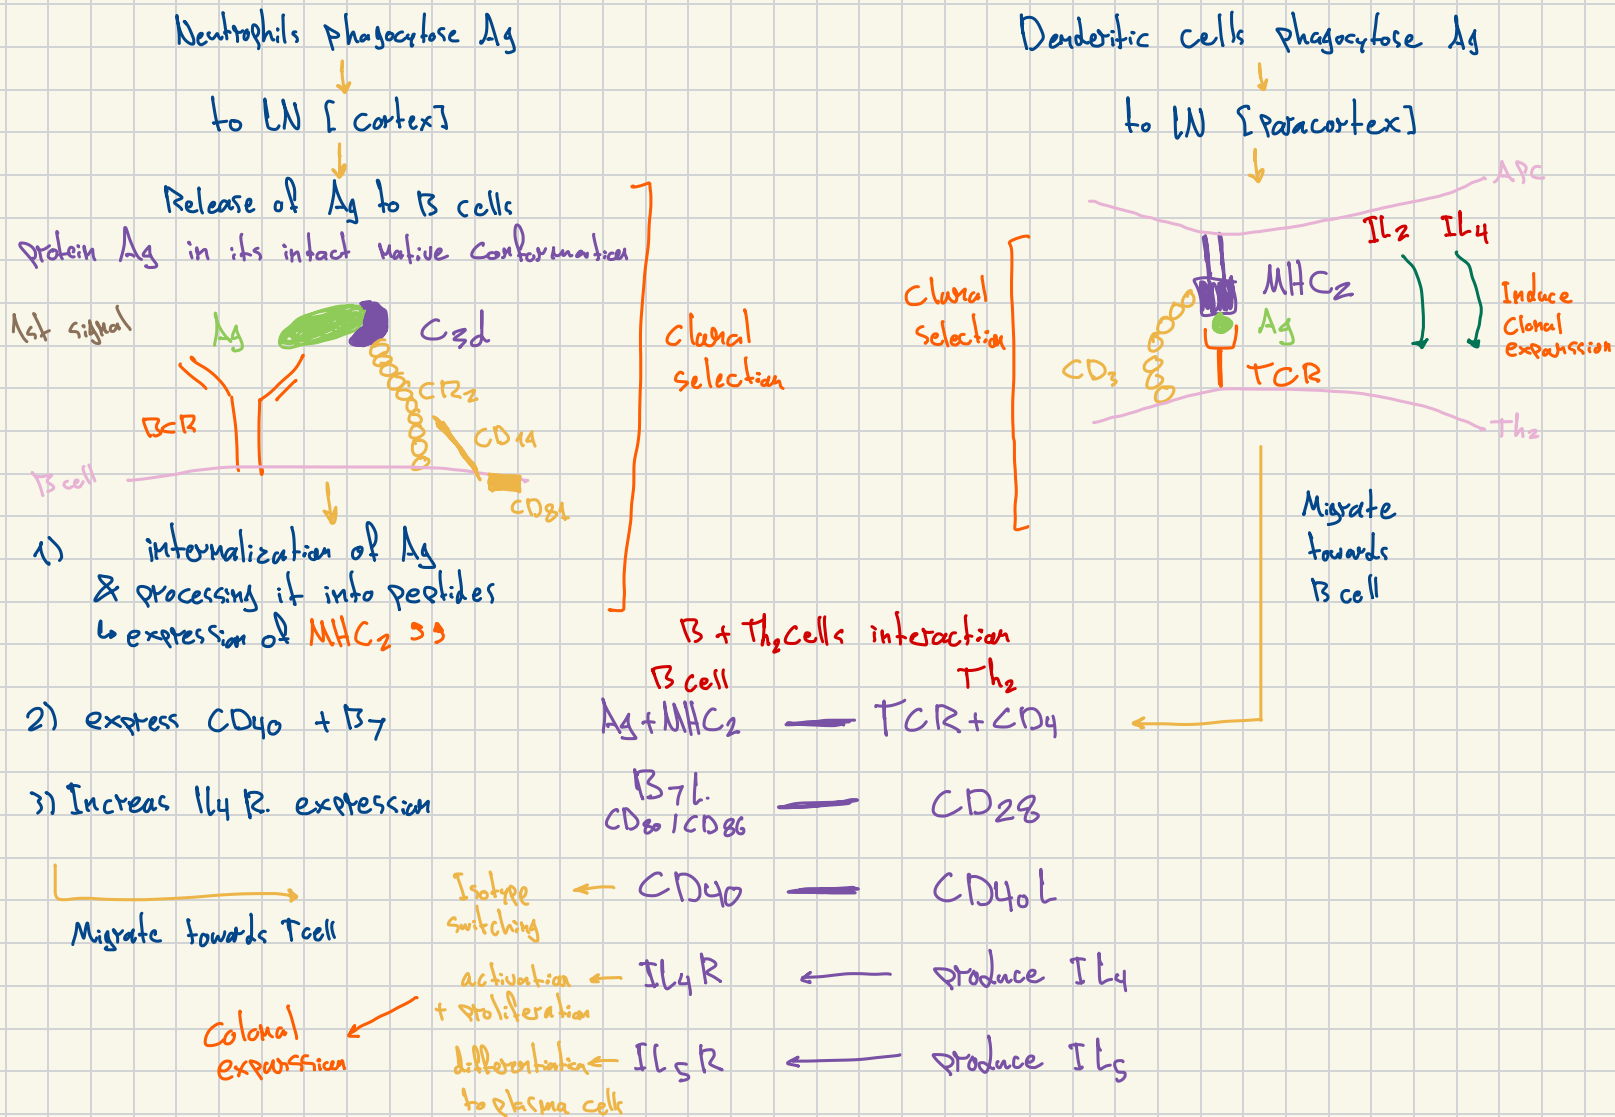 Neutrophils phagocytose Ag
to LN [cortex]
Release of Ag to B cells
protein Ag in its intact native conformation
1st signal
Ag
C3d
CR2
BCR
CD19
B cell
CD81
Clonal
selection
1) internalization of Ag
& processing it into peptides
↳ expression of MHC2
2) express CD40 + B7
3) Increas IL4 R. expression
Migrate towards T cell
Denderitic cells phagocytose Ag
to LN [paracortex]
APC
IL2 IL4
MHC2
Ag
CD3
TCR
Th2
Clonal
selection
Induce
Clonal
expanssion
Migrate
towards
B cell
B + Th2 cells interaction
B cell Th2
Ag + MHC2 — TCR + CD4
B7 L. — CD28
CD80 / CD86
Isotype
switching
← CD40 — CD40L
activation
+ proliferation
← IL4 R ← produce IL4
Colonal
expanssion
differentiation
to plasma cells
← IL5 R ← produce IL5